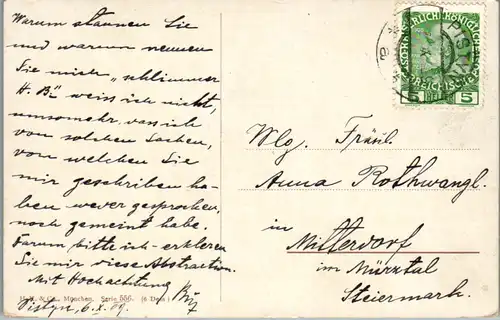 Warum staunen Sie
und warum nennen
Sie mich „schlimmer
H. B." weiss ich nicht,
umsomehr dass ich
von solchen Sachen,
von welchen Sie
mir geschrieben ha-
ben wever gesprochen,
noch gemeint habe.
Darum, bitte ich erkleren
Sie mir diese Abstraction.
Mit Hochachtung
6. X. 09.
& Co., München. Serie 556. (6 Dess.)
KAISERLICHE KÖNIGLICHE
ÖSTERREICHISCHE
5 5
PISTY
Wlg. Fräul.
Anna Rothwangl.
in
Mitterdorf
im Mürztal
Steiermark.